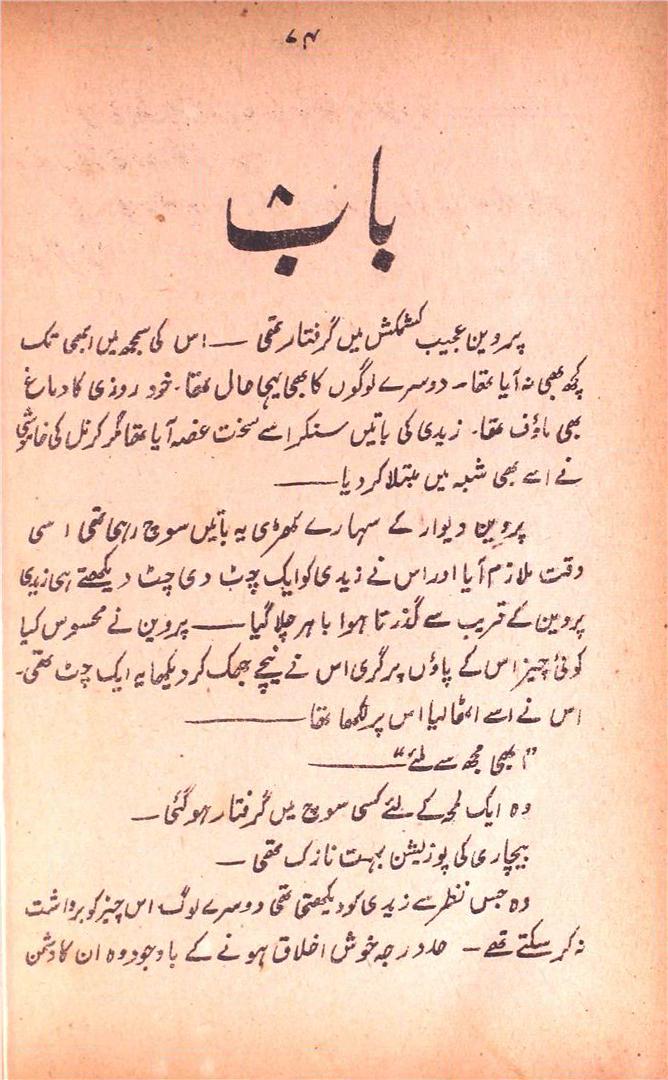 ۷۴
باب ۸
پروین عجیب کشمکش میں گرفتار تھی — اس کی سمجھ میں ابھی تک
کچھ بھی نہ آیا تھا۔ دوسرے لوگوں کا بھی یہی حال تھا۔ خود روزی کا دماغ
بھی ماؤف تھا۔ زیدی کی باتیں سنکر اسے سخت غصہ آیا تھا مگر کرنل کی خاموشی
نے اسے بھی شبہ میں مبتلا کر دیا —
پروین دیوار کے سہارے کھڑی یہ باتیں سوچ رہی تھی اسی
وقت ملازم آیا اور اس نے زیدی کو ایک چٹ دی چٹ دیکھتے ہی زیدی
پروین کے قریب سے گذرتا ہوا باہر چلا گیا — پروین نے محسوس کیا
کوئی چیز اس کے پاؤں پر گری اس نے نیچے جھک کر دیکھا یہ ایک چٹ تھی۔
اس نے اسے اٹھا لیا اس پر لکھا تھا —
"ابھی مجھ سے ملئے" —
وہ ایک لمحہ کے لئے کسی سوچ میں گرفتار ہو گئی —
بیچاری کی پوزیشن بہت نازک تھی —
وہ جس نظر سے زیدی کو دیکھتی تھی دوسرے لوگ اس چیز کو برداشت
نہ کر سکتے تھے — حد درجہ خوش اخلاق ہونے کے باوجود وہ ان کا دشمن